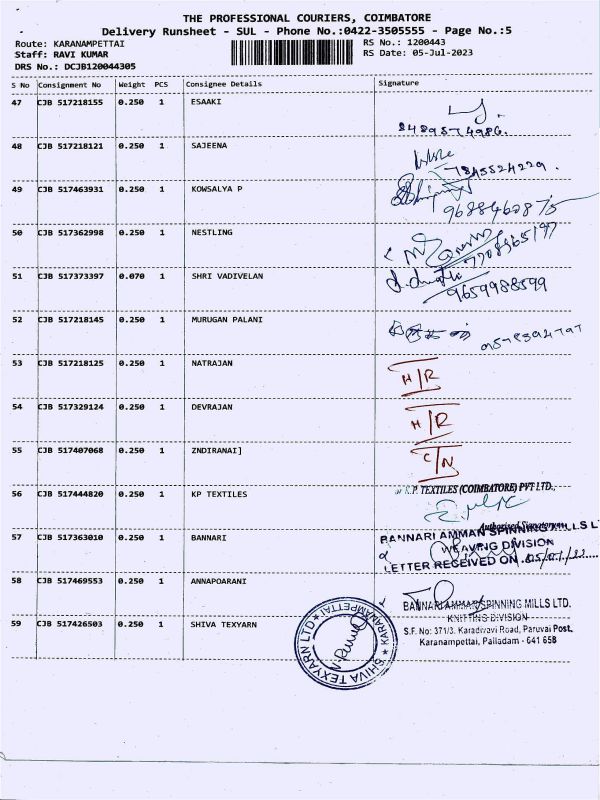 THE PROFESSIONAL COURIERS, COIMBATORE
Delivery Runsheet - SUL - Phone No.:0422-3505555 - Page No.:5
Route: KARANAMPETTAI
RS No.: 1200443
Staff: RAVI KUMAR
RS Date: 05-Jul-2023
DRS No.: DCJB120044305
S No Consignment No Weight PCS Consignee Details Signature
47 CJB 517218155 0.250 1 ESAAKI
8489574986.
48 CJB 517218121 0.250 1 SAJEENA
7845524229.
49 CJB 517463931 0.250 1 KOWSALYA P
9688460875
50 CJB 517362998 0.250 1 NESTLING
51 CJB 517373397 0.070 1 SHRI VADIVELAN
9659988599
52 CJB 517218145 0.250 1 MURUGAN PALANI
53 CJB 517218125 0.250 1 NATRAJAN
H/R
54 CJB 517329124 0.250 1 DEVRAJAN
H/R
55 CJB 517407068 0.250 1 ZNDIRANAI]
C/N
56 CJB 517444820 0.250 1 KP TEXTILES
K.P. TEXTILES (COIMBATORE) PVT LTD.,
Authorised Signatory
57 CJB 517363010 0.250 1 BANNARI
BANNARI AMMAN SPINNING MILLS L
WEAVING DIVISION
LETTER RECEIVED ON
58 CJB 517469553 0.250 1 ANNAPOARANI
BANNARI AMMAN SPINNING MILLS LTD.
KNITTING DIVISION
59 CJB 517426503 0.250 1 SHIVA TEXYARN
S.F. No: 371/3. Karadivavi Road, Paruvai Post,
Karanampettai, Palladam - 641 658
SHIVA TEXYARN LTD
KARANAMPETTAI